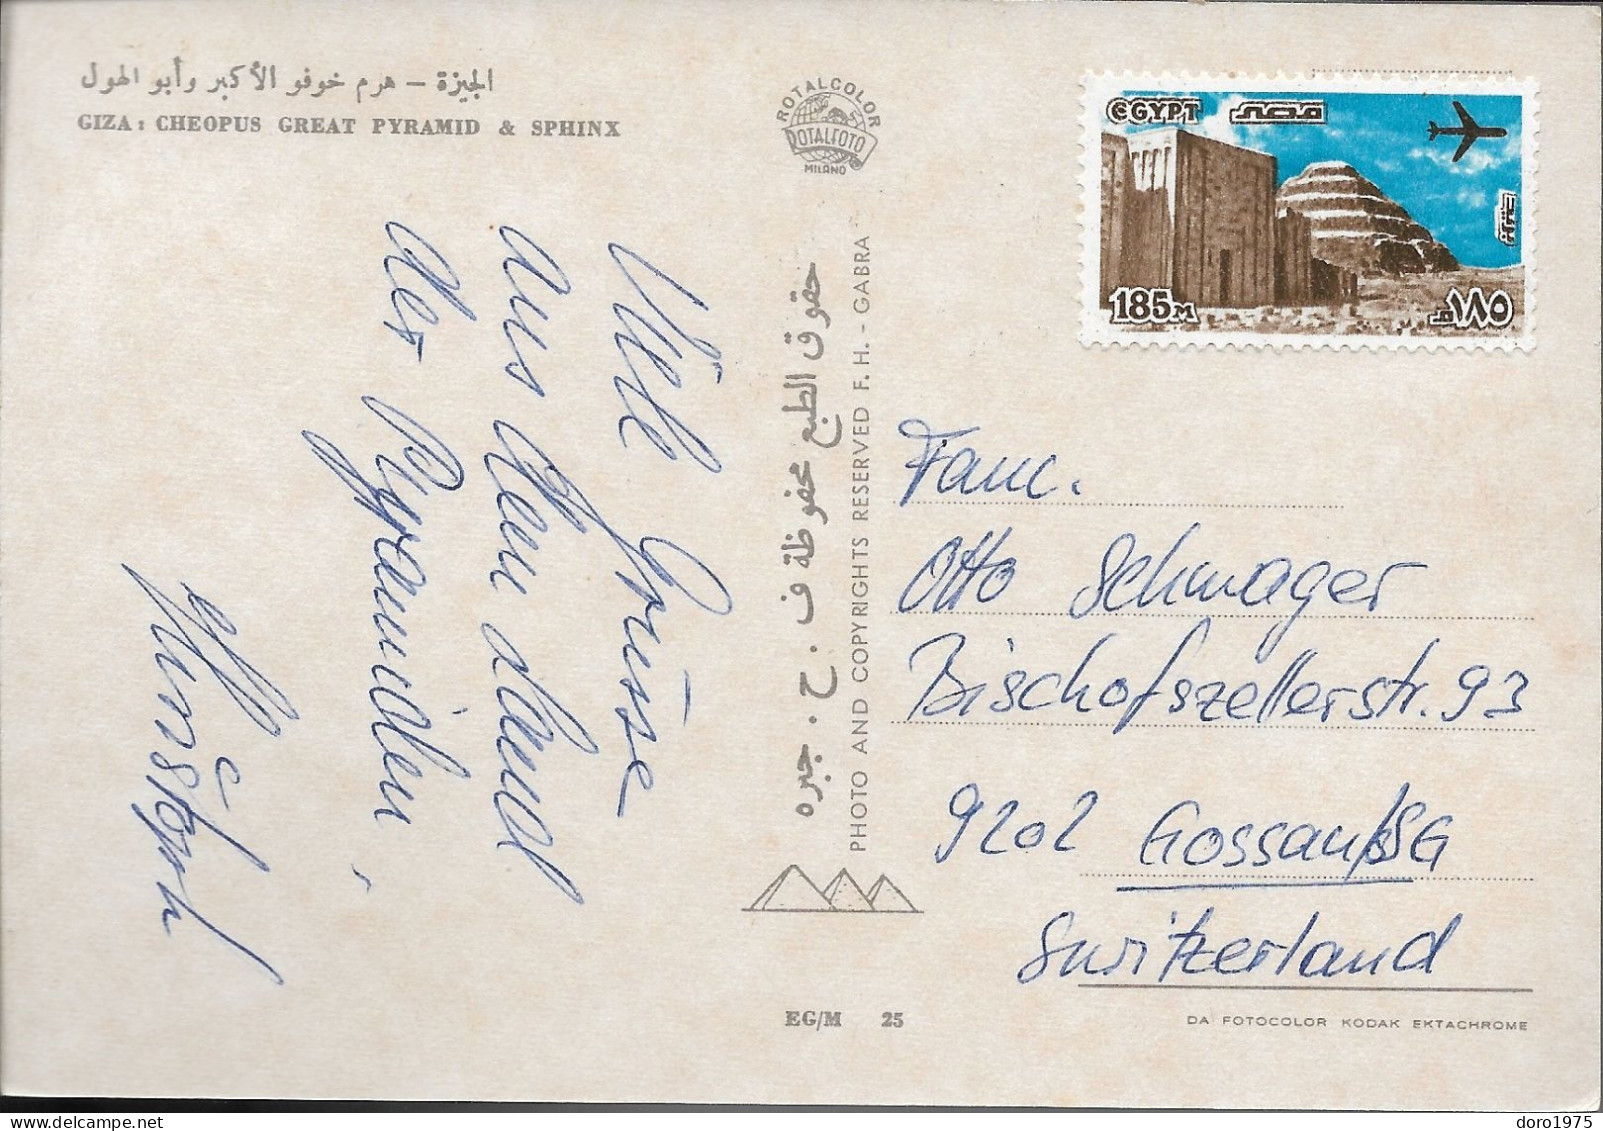 الجيزة – هرم خوفو الأكبر وأبو الهول
GIZA: CHEOPUS GREAT PYRAMID & SPHINX
ROTALCOLOR
ROTALFOTO
MILANO
EGYPT مصر
185M ١٨٥م
Viele Grüsse
aus dem Land
der Pyramiden,
حقوق الطبع محفوظة ف . ح . جبره
PHOTO AND COPYRIGHTS RESERVED F. H. - GABRA
Fam.
Otto Schwager
Bischofszellerstr. 93
9202 Gossau/SG
Switzerland
EG/M 25
DA FOTOCOLOR KODAK EKTACHROME
doro1975